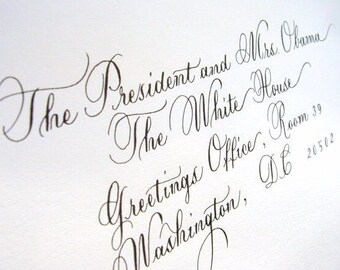 The President and Mrs. Obama
The White House
Greetings Office, Room 39
Washington,
DC 20502